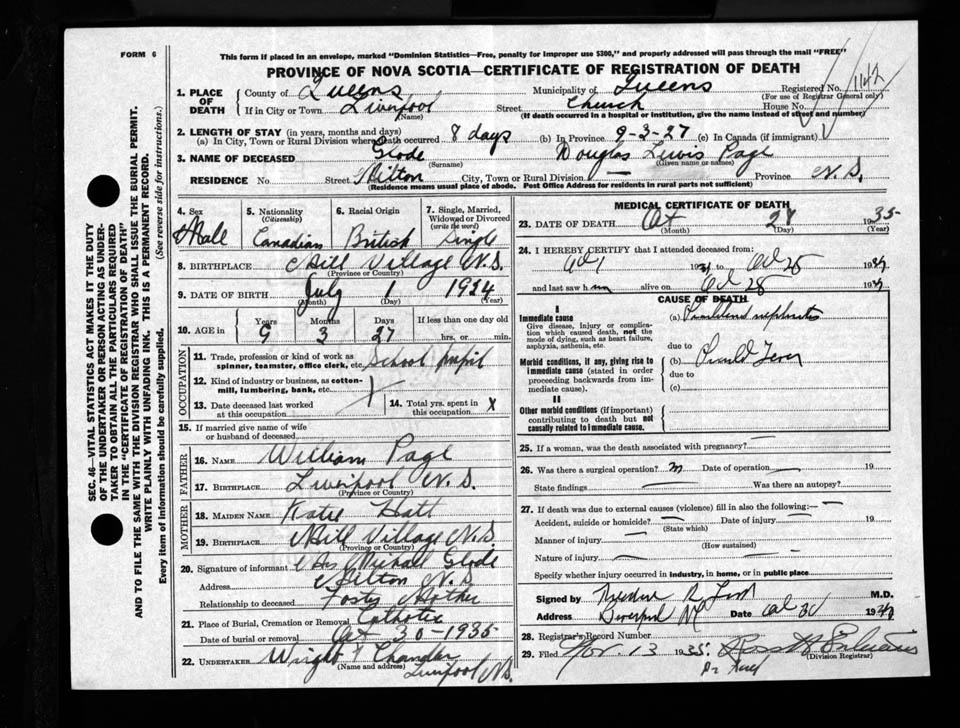 FORM 6
This form if placed in an envelope, marked "Dominion Statistics—Free, penalty for improper use $300," and properly addressed will pass through the mail "FREE"
PROVINCE OF NOVA SCOTIA—CERTIFICATE OF REGISTRATION OF DEATH
1. PLACE OF DEATH { County of Queens Municipality of Queens Registered No. 1142
(For use of Registrar General only)
If in City or Town Liverpool Street Church House No.
(Name) (If death occurred in a hospital or institution, give the name instead of street and number)
2. LENGTH OF STAY (in years, months and days)
(a) In City, Town or Rural Division where death occurred 8 days (b) In Province 9-3-27 (c) In Canada (if immigrant)
3. NAME OF DECEASED Glode Douglas Lewis Page
(Surname) (Given name or names)
RESIDENCE No Street Milton City, Town or Rural Division — Province N.S.
(Residence means usual place of abode. Post Office Address for residents in rural parts not sufficient)
4. Sex Male
5. Nationality (Citizenship) Canadian
6. Racial Origin British
7. Single, Married, Widowed or Divorced (write the word) Single
8. BIRTHPLACE Mill Village N.S.
(Province or Country)
9. DATE OF BIRTH July 1 1924
(Month) (Day) (Year)
10. AGE in { Years 9 Months 3 Days 27 If less than one day old
hrs. or min.
OCCUPATION
11. Trade, profession or kind of work as spinner, teamster, office clerk, etc. School Pupil
12. Kind of industry or business, as cotton-mill, lumbering, bank, etc.
13. Date deceased last worked at this occupation
14. Total yrs. spent in this occupation X
15. If married give name of wife or husband of deceased
FATHER
16. NAME William Page
17. BIRTHPLACE Liverpool N.S.
(Province or Country)
MOTHER
18. MAIDEN NAME Katie Hatt
19. BIRTHPLACE Mill Village N.S.
(Province or Country)
20. Signature of informant Mrs Michael Glode
Address Milton N.S
Relationship to deceased Foster Mother
21. Place of Burial, Cremation or Removal Catholic
Date of burial or removal Oct 30-1935
22. UNDERTAKER Wright & Chandler
(Name and address) Liverpool N.S.
MEDICAL CERTIFICATE OF DEATH
23. DATE OF DEATH Oct 28 1935
(Month) (Day) (Year)
24. I HEREBY CERTIFY that I attended deceased from:
Oct 1 19 to Oct 28 19
and last saw him alive on Oct 28 19
CAUSE OF DEATH
I
Immediate cause
Give disease, injury or complication which caused death, not the mode of dying, such as heart failure, asphyxia, asthenia, etc.
(a) nephritis
due to
Morbid conditions, if any, giving rise to immediate cause (stated in order proceeding backwards from immediate cause).
(b) Fever
due to
(c)
II
Other morbid conditions (if important) contributing to death but not causally related to immediate cause.
25. If a woman, was the death associated with pregnancy? —
26. Was there a surgical operation? Date of operation — 19
State findings — Was there an autopsy?
27. If death was due to external causes (violence) fill in also the following:—
Accident, suicide or homicide? — Date of injury — 19
(State which)
Manner of injury —
(How sustained)
Nature of injury —
Specify whether injury occurred in industry, in home, or in public place
Signed by M.D.
Address Liverpool NS Date Oct 19
28. Registrar's Record Number
29. Filed Nov. 13 1935.
(Division Registrar)
SEC. 46—VITAL STATISTICS ACT MAKES IT THE DUTY OF THE UNDERTAKER OR PERSON ACTING AS UNDERTAKER TO OBTAIN ALL THE PARTICULARS REQUIRED IN THE "CERTIFICATE OF REGISTRATION OF DEATH" AND TO FILE THE SAME WITH THE DIVISION REGISTRAR WHO SHALL ISSUE THE BURIAL PERMIT.
WRITE PLAINLY WITH UNFADING INK. THIS IS A PERMANENT RECORD.
Every item of information should be carefully supplied. (See reverse side for instructions.)